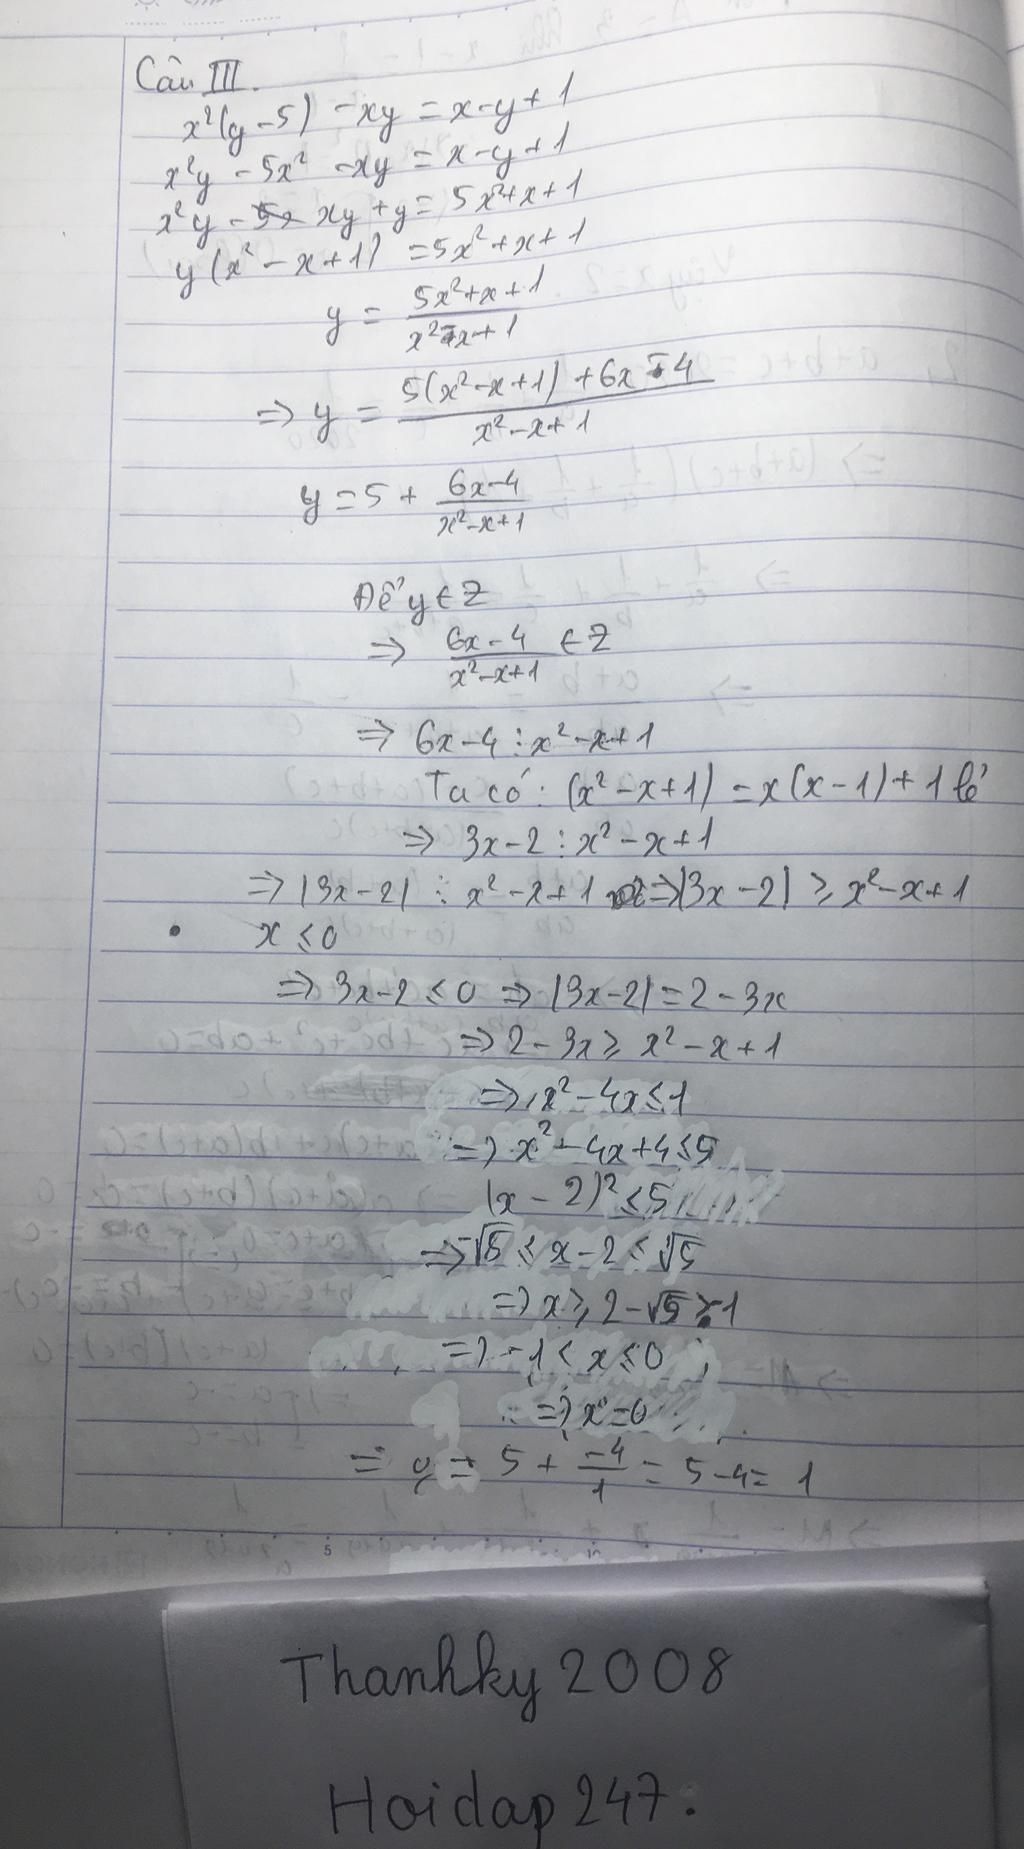 Câu III.
x²(y-5) -xy = x-y+1
x²y - 5x² -xy = x-y+1
x²y - xy + y = 5x²+x+1
y(x² - x+1) = 5x²+x+1
y = \frac{5x²+x+1}{x²-x+1}
⇒ y = \frac{5(x²-x+1) + 6x-4}{x²-x+1}
y = 5 + \frac{6x-4}{x²-x+1}
Để y ∈ Z
⇒ \frac{6x-4}{x²-x+1} ∈ Z
⇒ 6x-4 ⋮ x²-x+1
Ta có: (x²-x+1) = x(x-1)+1 lẻ
⇒ 3x-2 ⋮ x²-x+1
⇒ |3x-2| ⋮ x²-x+1 ⇒ |3x-2| ≥ x²-x+1
• x ≤ 0
⇒ 3x-2 ≤ 0 ⇒ |3x-2| = 2-3x
⇒ 2-3x ≥ x²-x+1
⇒ x²-4x ≤ 1
⇒ x²-4x+4 ≤ 5
(x-2)² ≤ 5
⇒ -√5 ≤ x-2 ≤ √5
⇒ x ≥ 2-√5 > -1
⇒ -1 < x ≤ 0
⇒ x=0
= y = 5 + \frac{-4}{1} = 5-4= 1
Thanhky 2008
Hoidap 247.